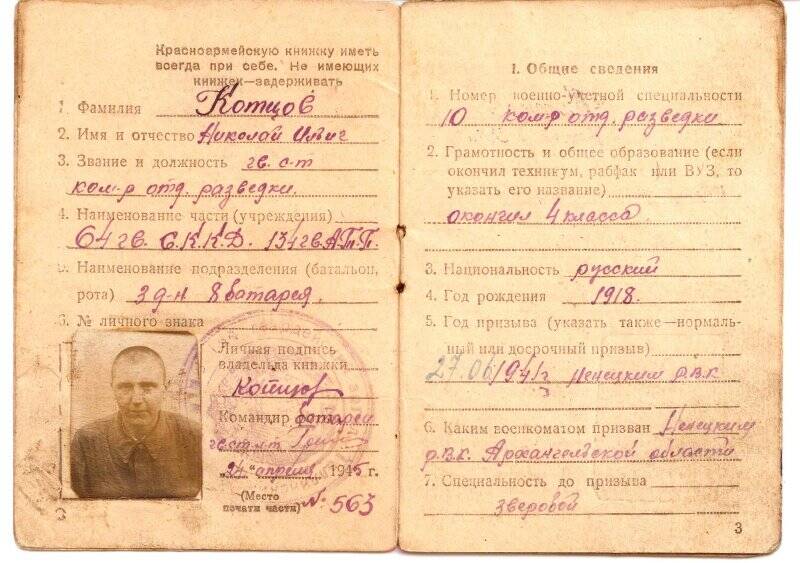 Красноармейскую книжку иметь
всегда при себе. Не имеющих
книжек—задерживать
1. Фамилия Котцов
2. Имя и отчество Николай Ильич
3. Звание и должность гв. с-т
ком-р отд. разведки.
4. Наименование части (учреждения)
64 гв. С.К.К.Д. 134 гв. А.Т.П.
5. Наименование подразделения (батальон,
рота) 3 д-н 8 батарея.
6. № личного знака
Личная подпись
владельца книжки
Котцов
Командир батареи
гв. ст. л-т
„24" апреля 1945 г.
(Место
печати части) № 563
I. Общие сведения
1. Номер военно-учетной специальности
10 ком-р отд. разведки
2. Грамотность и общее образование (если
окончил техникум, рабфак или ВУЗ, то
указать его название)
окончил 4 класса
3. Национальность русский
4. Год рождения 1918.
5. Год призыва (указать также—нормаль-
ный или досрочный призыв)
27.06.1941г Ненецким Р.В.К
6. Каким военкоматом призван Ненецким
Р.В.К. Архангельской области
7. Специальность до призыва
зверовой
3